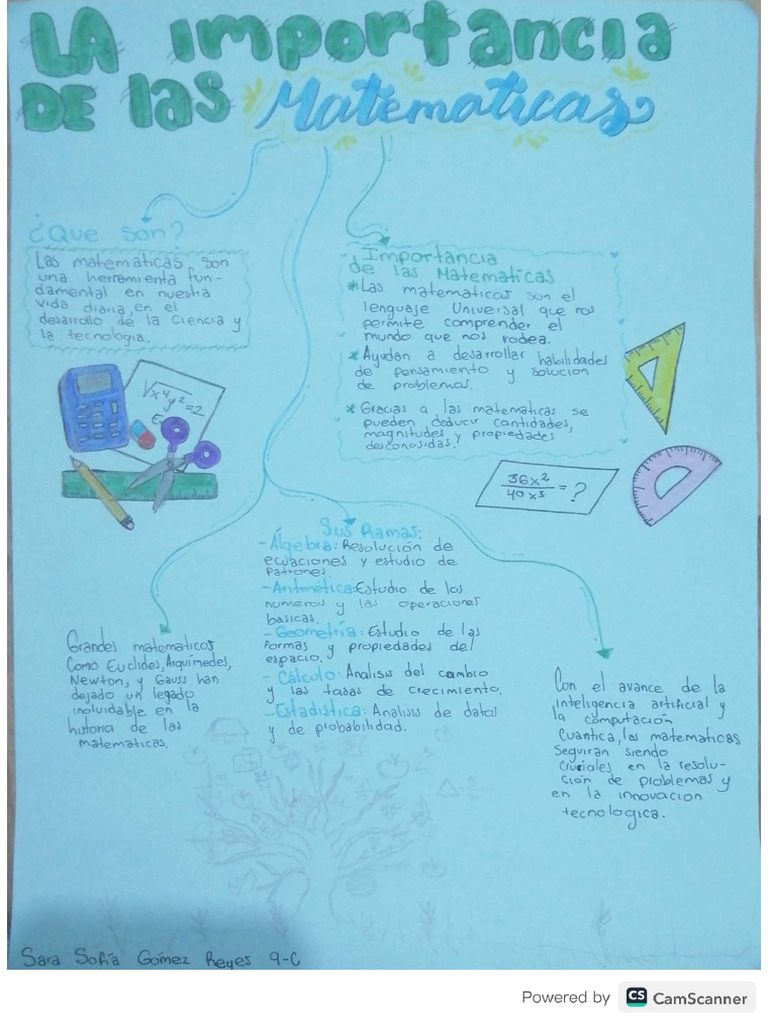 LA importancia
DE las Matematicas
¿Que son?
Las matematicas son
una herramienta fun-
damental en nuestra
vida diaria, en el
desarrollo de la ciencia y
la tecnologia.
√x⁴y²=2
Importancia
de las Matematicas
*Las matematicas son el
lenguaje Universal que nos
permite comprender el
mundo que nos rodea.
*Ayudan a desarrollar habilidades
de pensamiento y solucion
de problemas.
*Gracias a las matematicas se
pueden deducir cantidades,
magnitudes y propiedades
desconosidas.
36x²
= ?
40x³
Sus Ramas:
-Álgebra: Resolución de
ecuaciones y estudio de
Patrones.
-Aritmética: Estudio de los
numeros y las operaciones
basicas.
-Geometría: Estudio de las
Formas y propiedades del
espacio.
-Cálculo: Analisis del cambio
y las tasas de crecimiento.
-Estadistica: Analisis de datos
y de probabilidad.
Grandes matematicos
Como Euclides, Arquimedes,
Newton, y Gauss han
dejado un legado
inolvidable en la
historia de las
matematicas.
Con el avance de la
inteligencia artificial y
la computación
Cuantica, las matematicas
Seguiran siendo
cruciales en la resolu-
ción de problemas y
en la innovacion
tecnologica.
Sara Sofía Gómez Reyes 9-C
Powered by CS CamScanner